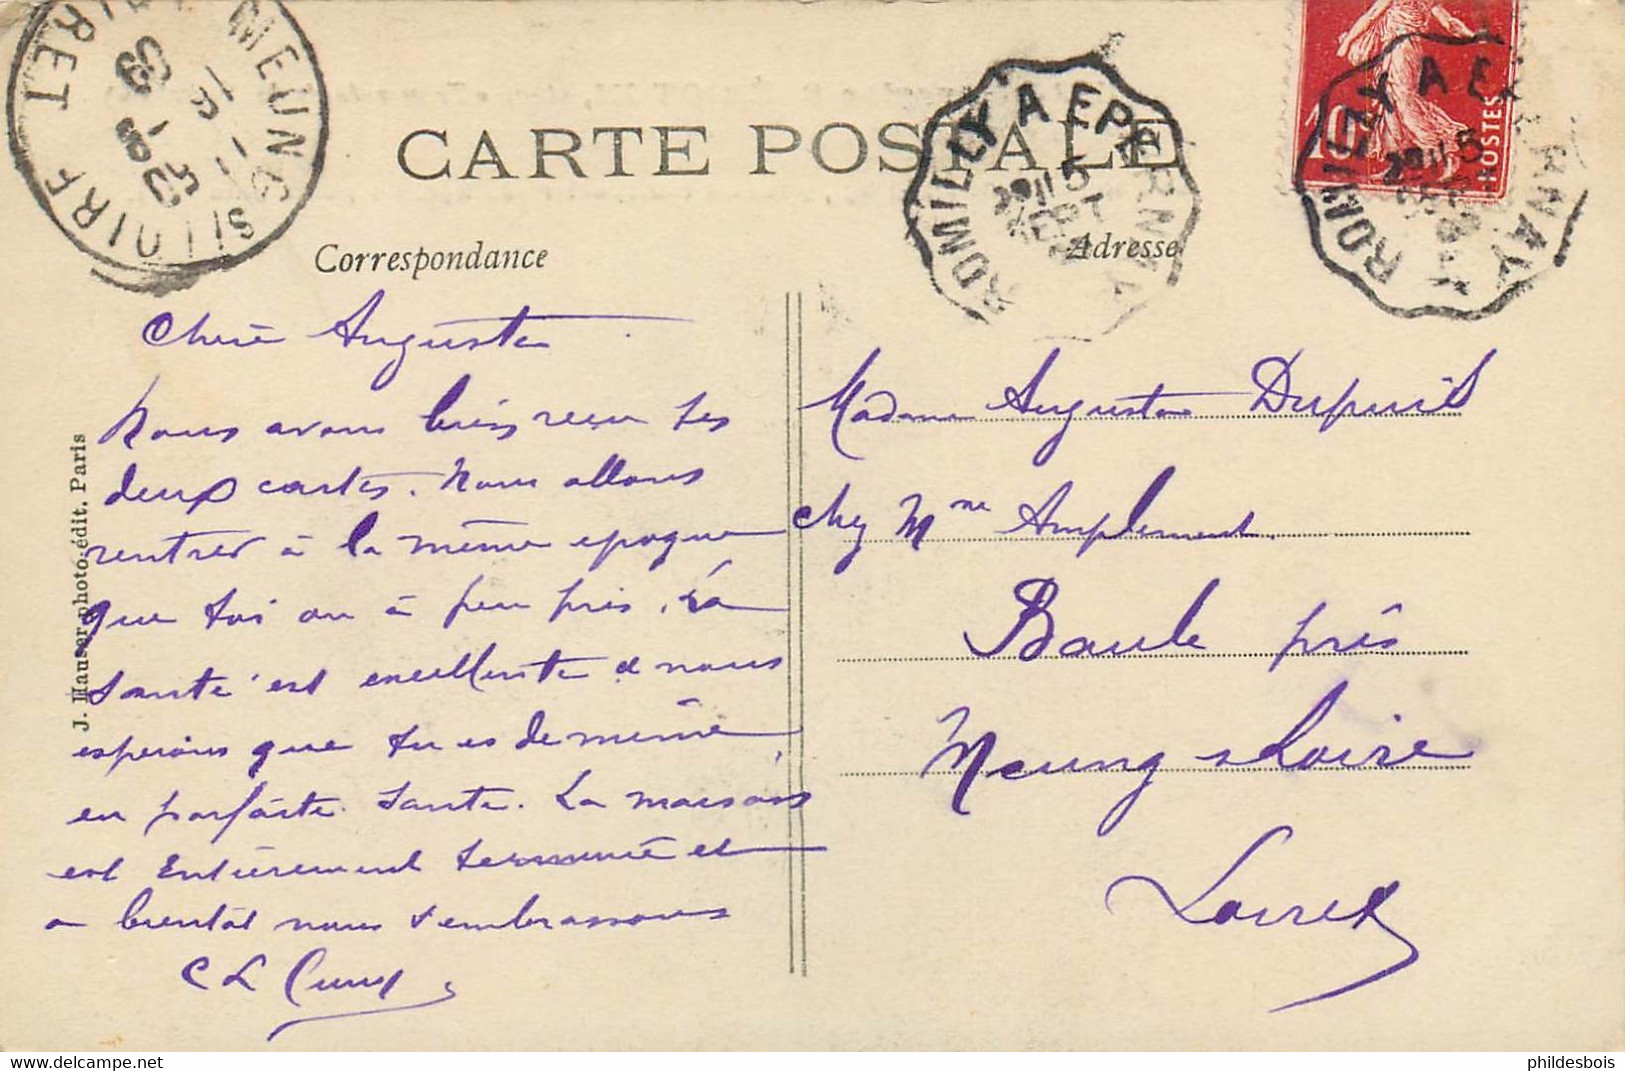 MEUNG S/ LOIRE
LOIRET
16
6-9
09
CARTE POSTALE
ROMILLY A EPERNAY
5
SEPT
ROMILLY A EPERNAY
10
POSTES
Correspondance
Adresse
J. Hauser, photo-édit. Paris
Chère Augustine
Nous avons bien reçu tes
deux cartes. Nous allons
rentrer à la même epoque
que toi ou à peu près. La
santé est excellente et nous
espérons que tu es de même
en parfaite santé. La maison
est entièrement terminée et
a bientôt nous t'embrassons
C L
Madame Augustine Dupuis
chez Mme Amplement
Baule près
Meung s Loire
Loiret
phildesbois